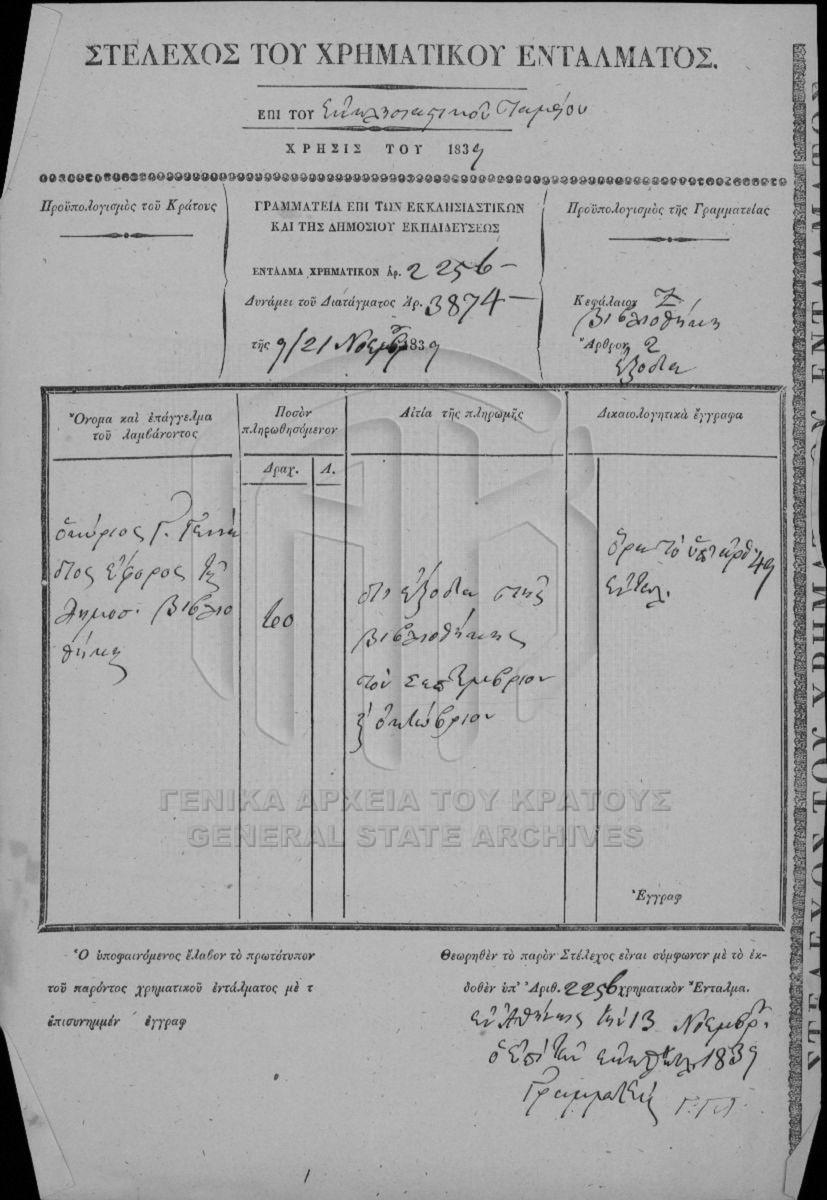 ΣΤΕΛΕΧΟΣ ΤΟΥ ΧΡΗΜΑΤΙΚΟΥ ΕΝΤΑΛΜΑΤΟΣ.
ΕΠΙ ΤΟΥ Ἐκκλησιαστικοῦ Ταμείου
ΧΡΗΣΙΣ ΤΟΥ 1839
Προϋπολογισμὸς τοῦ Κράτους
ΓΡΑΜΜΑΤΕΙΑ ΕΠΙ ΤΩΝ ΕΚΚΛΗΣΙΑΣΤΙΚΩΝ
ΚΑΙ ΤΗΣ ΔΗΜΟΣΙΟΥ ΕΚΠΑΙΔΕΥΣΕΩΣ
ΕΝΤΑΛΜΑ ΧΡΗΜΑΤΙΚΟΝ Ἀρ. 2256
Δυνάμει τοῦ Διατάγματος Ἀρ. 3874
τῆς 9/21 Νοεμβρ 1839
Προϋπολογισμὸς τῆς Γραμματείας
Κεφάλαιον Ζ
Βιβλιοθήκη
Ἄρθρον 2
ἔξοδα
Ὄνομα καὶ ἐπάγγελμα
τοῦ λαμβάνοντος
Ποσὸν
πληρωθησόμενον
Δραχ. Λ.
Αἰτία τῆς πληρωμῆς
Δικαιολογητικὰ ἔγγραφα
ὁ κύριος Γ. Γεννά
διος ἔφορος τῆς
Δημοσ. Βιβλιο
θήκης
60
δι' ἔξοδα τῆς
Βιβλιοθήκης
τὸν Σεπτέμβριον
ὀκτώβριον
ὅρα τὸ ὑπ' ἀρθ 49
ἔνταλ.
ΓΕΝΙΚΑ ΑΡΧΕΙΑ ΤΟΥ ΚΡΑΤΟΥΣ
GENERAL STATE ARCHIVES
Ἔγγραφ
Ὁ ὑποφαινόμενος ἔλαβον τὸ πρωτότυπον
τοῦ παρόντος χρηματικοῦ ἐντάλματος μὲ τ
ἐπισυνημμέν ἐγγραφ
Θεωρηθὲν τὸ παρὸν Στέλεχος εἶναι σύμφωνον μὲ τὸ ἐκ-
δοθὲν ὑπ' Ἀριθ. 2256 χρηματικὸν Ἔνταλμα.
ἐν Ἀθήναις τὴν 13 Νοεμβρ.
ὁ ἐπὶ τῶν 1839
Γραμματεὺς
ΣΤΕΛΕΧΟΣ ΤΟΥ ΧΡΗΜΑΤΙΚΟΥ ΕΝΤΑΛΜΑΤΟΣ